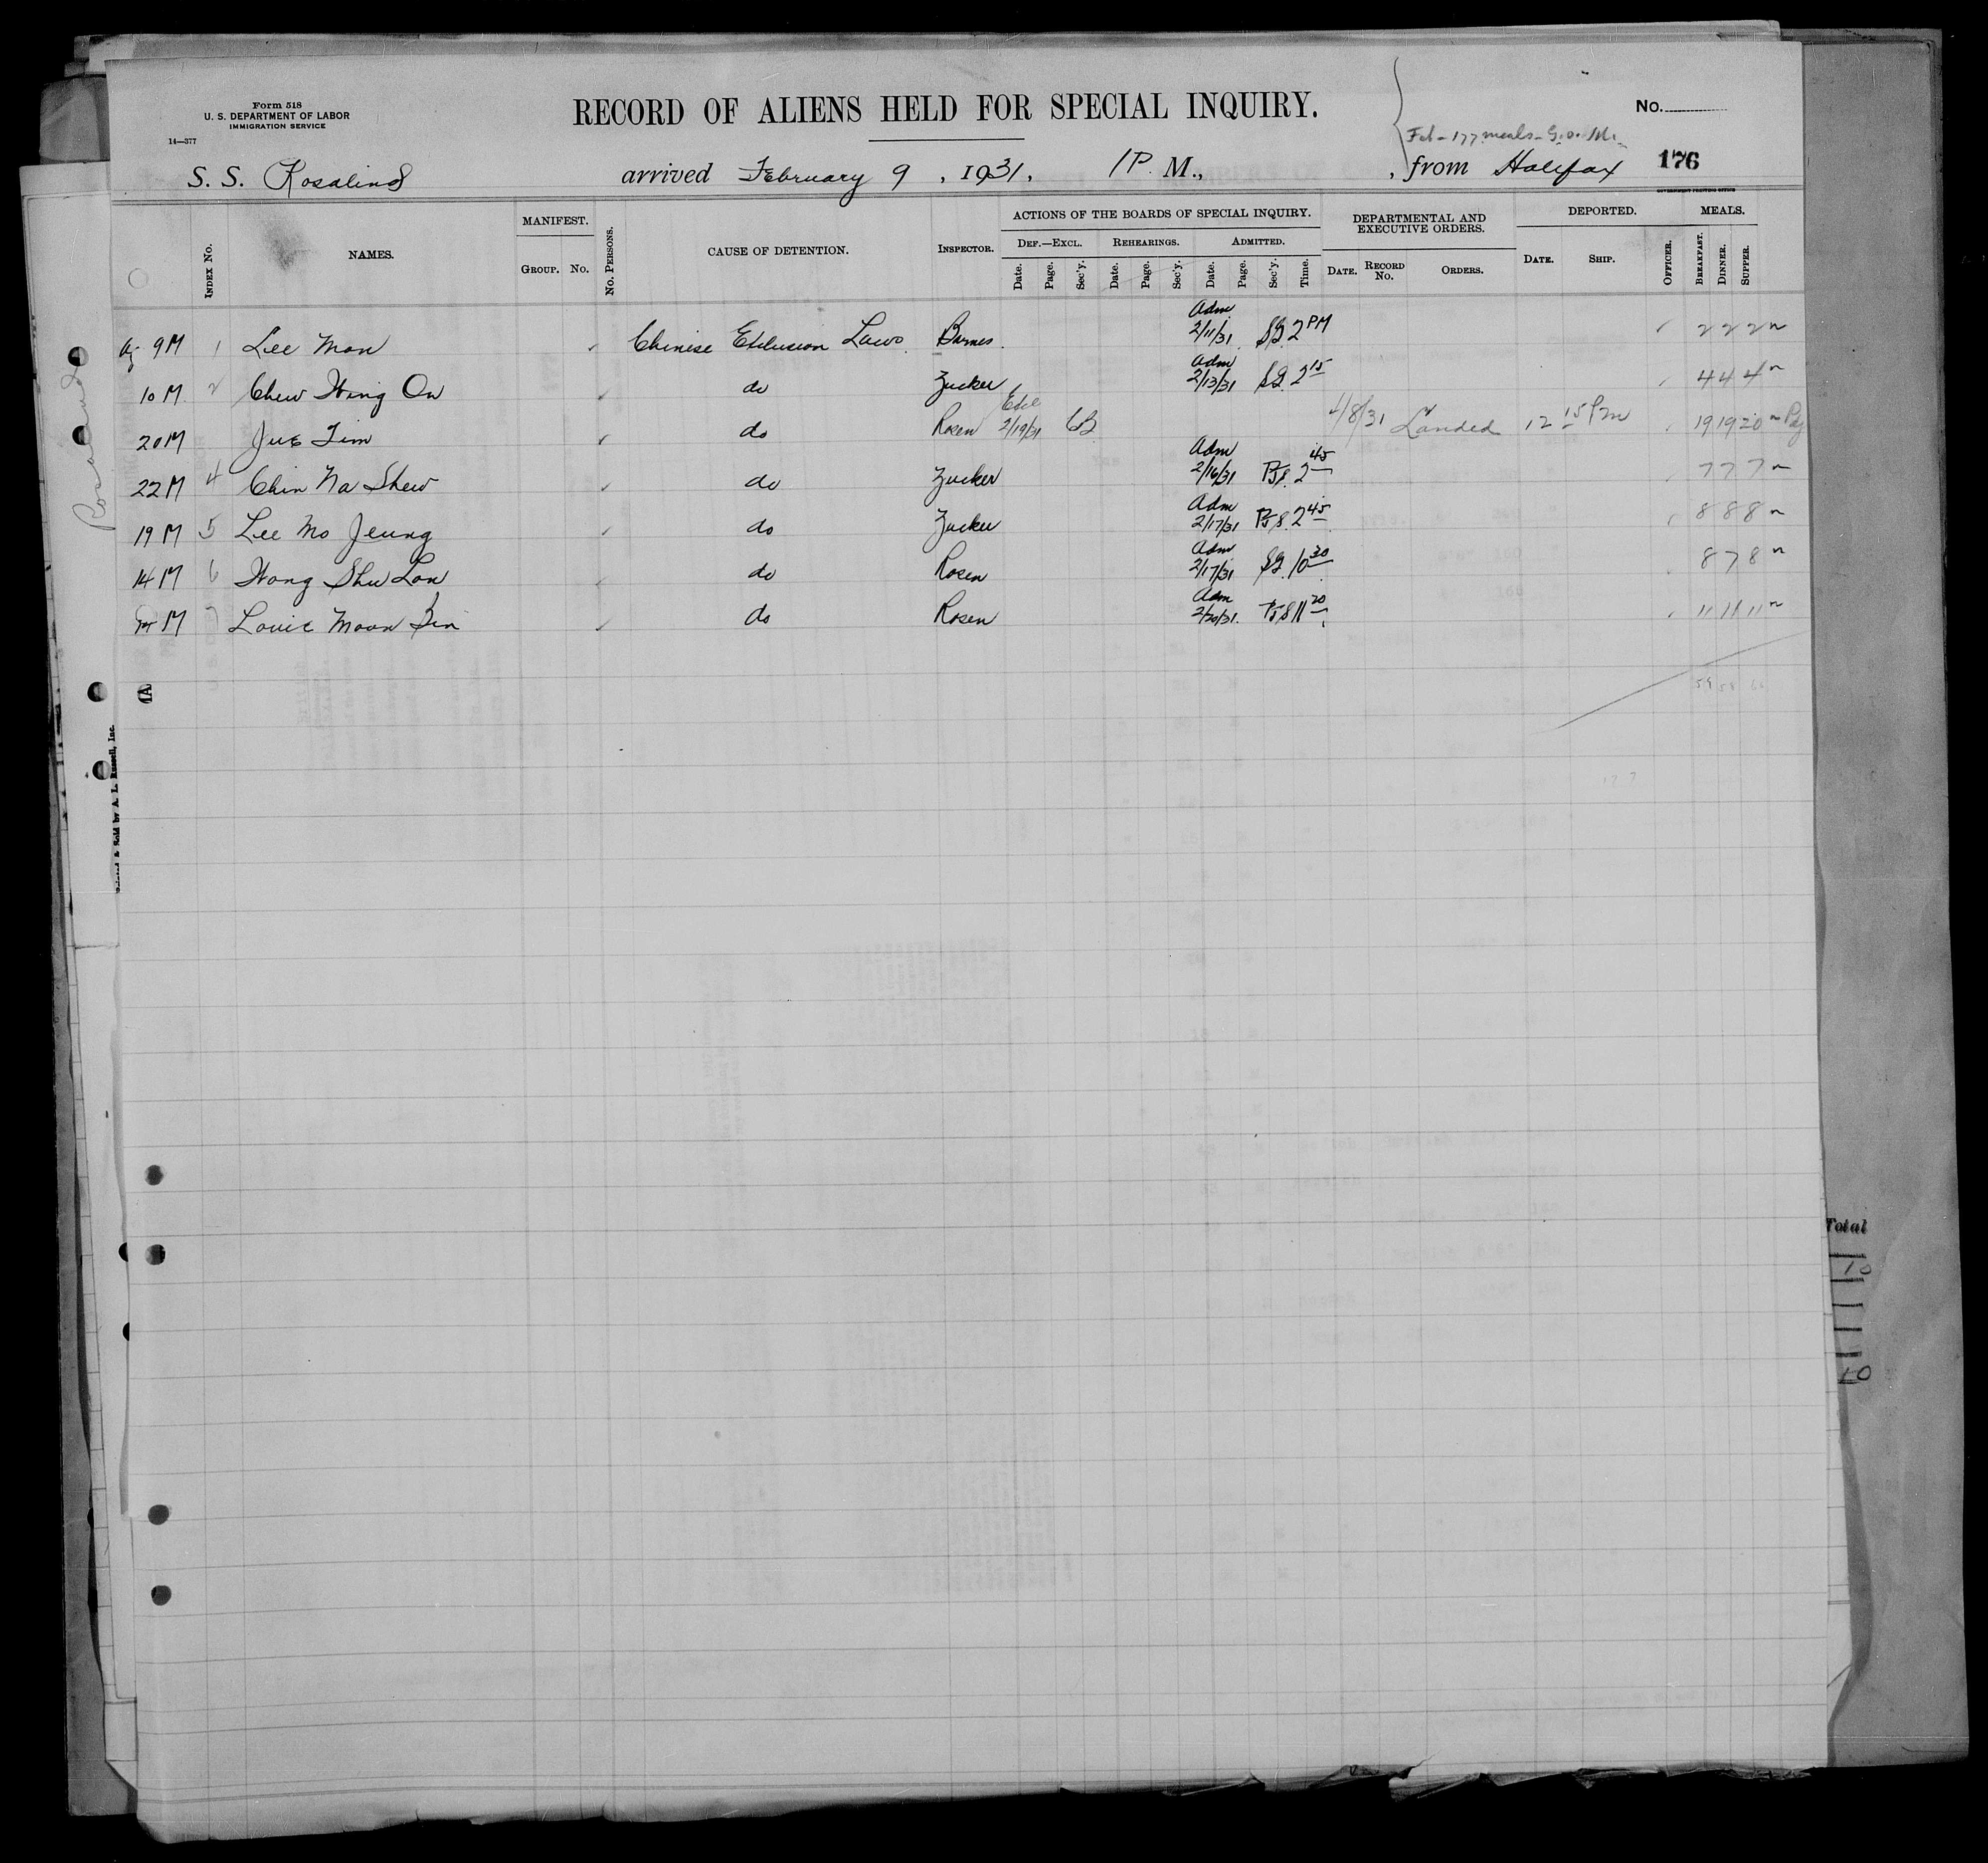 Form 518
U. S. DEPARTMENT OF LABOR
IMMIGRATION SERVICE
14—377
RECORD OF ALIENS HELD FOR SPECIAL INQUIRY.
No.
Feb - 177 meals
176
S. S. Rosalind arrived February 9, 1931, 1 P. M., from Halifax
GOVERNMENT PRINTING OFFICE
INDEX NO. NAMES. MANIFEST. GROUP. NO. NO. PERSONS. CAUSE OF DETENTION. INSPECTOR. ACTIONS OF THE BOARDS OF SPECIAL INQUIRY. DEF.—EXCL. Date. Page. Sec'y. REHEARINGS. Date. Page. Sec'y. ADMITTED. Date. Page. Sec'y. Time. DEPARTMENTAL AND EXECUTIVE ORDERS. DATE. RECORD NO. ORDERS. DEPORTED. DATE. SHIP. OFFICER. MEALS. BREAKFAST. DINNER. SUPPER.
9M 1 Lee Mon Chinese Exclusion Laws Barnes Adm 2/11/31 SG 2 PM 2 2 2
10 M 2 Chew Wing On do Zucker Adm 2/13/31 SG 2 15 4 4 4
20M Jue Tim do Rosen Excl 2/19/31 4/8/31 Landed 12 15 Pm 19 19 20
22M 4 Chin Na Shew do Zucker Adm 2/16/31 2 45 7 7 7
19 M 5 Lee Mo Jeung do Zucker Adm 2/17/31 2 45 8 8 8
14 M 6 Wong Shu Lon do Rosen Adm 2/17/31 SG 10 30 8 7 8
M 7 Louie Moon do Rosen Adm 2/20/31 11 20 11 11 11
59 58
177
1A
Printed & Sold by A. L. Russell, Inc.
Rosalind
Total
10
10